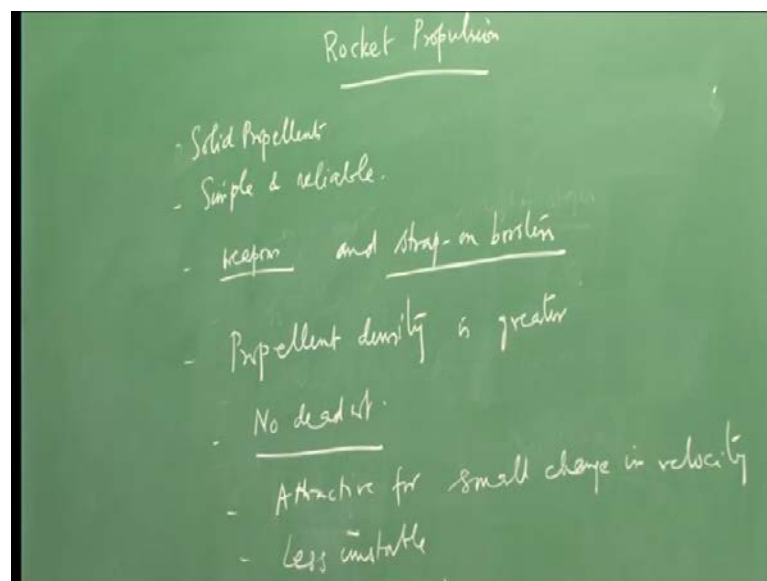 Rocket Propulsion
- Solid Propellents
- Simple & reliable.
- weapons and strap-on boosters
- Propellent density is greater
- No dead wt.
- Attractive for small change in velocity
- Less unstable